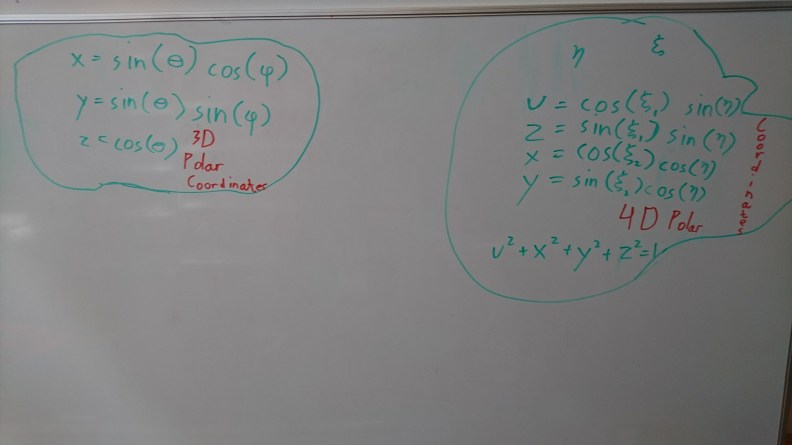 x = sin(θ) cos(φ)
y = sin(θ) sin(φ)
z = cos(θ) 3D
Polar
Coordinates
η ξ
v = cos(ξ₁) sin(η)
z = sin(ξ₁) sin(η)
x = cos(ξ₂) cos(η)
y = sin(ξ₂) cos(η)
4D Polar
Coordinates
v² + x² + y² + z² = 1